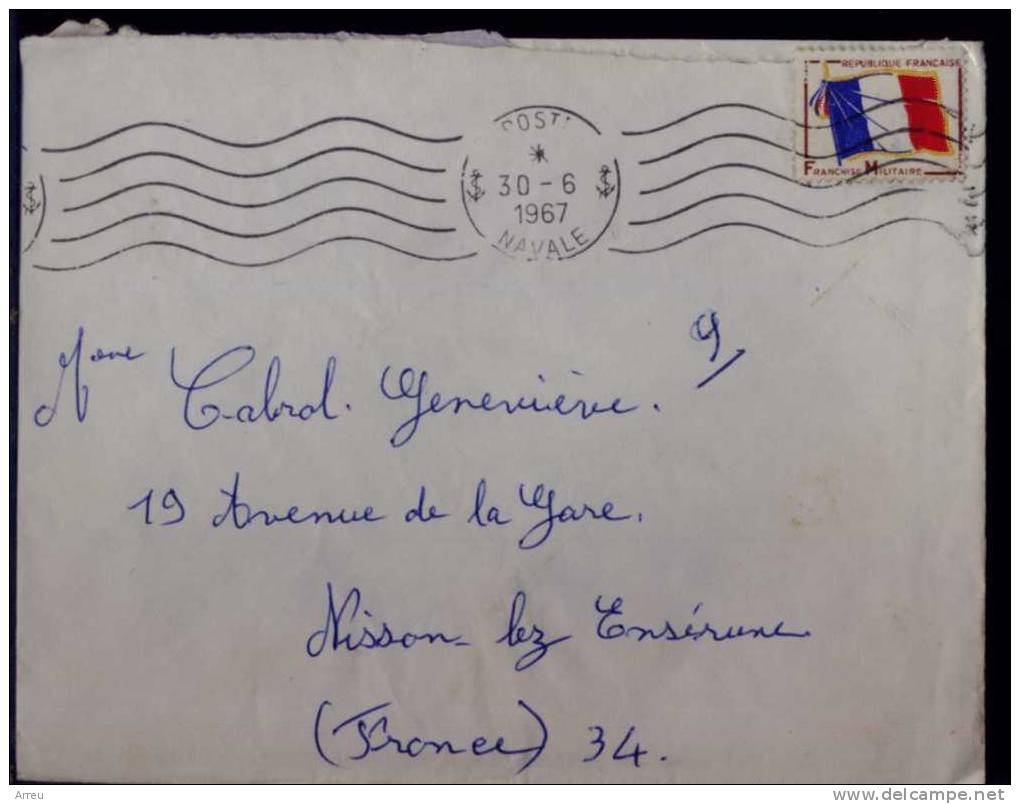 REPUBLIQUE FRANCAISE
FRANCHISE MILITAIRE
POSTE
30-6
1967
NAVALE
Mme Cabrol. Geneviève.
19 Avenue de la Gare.
Nisson-lez Ensérune
(France) 34.
Arreu
delcampe.net